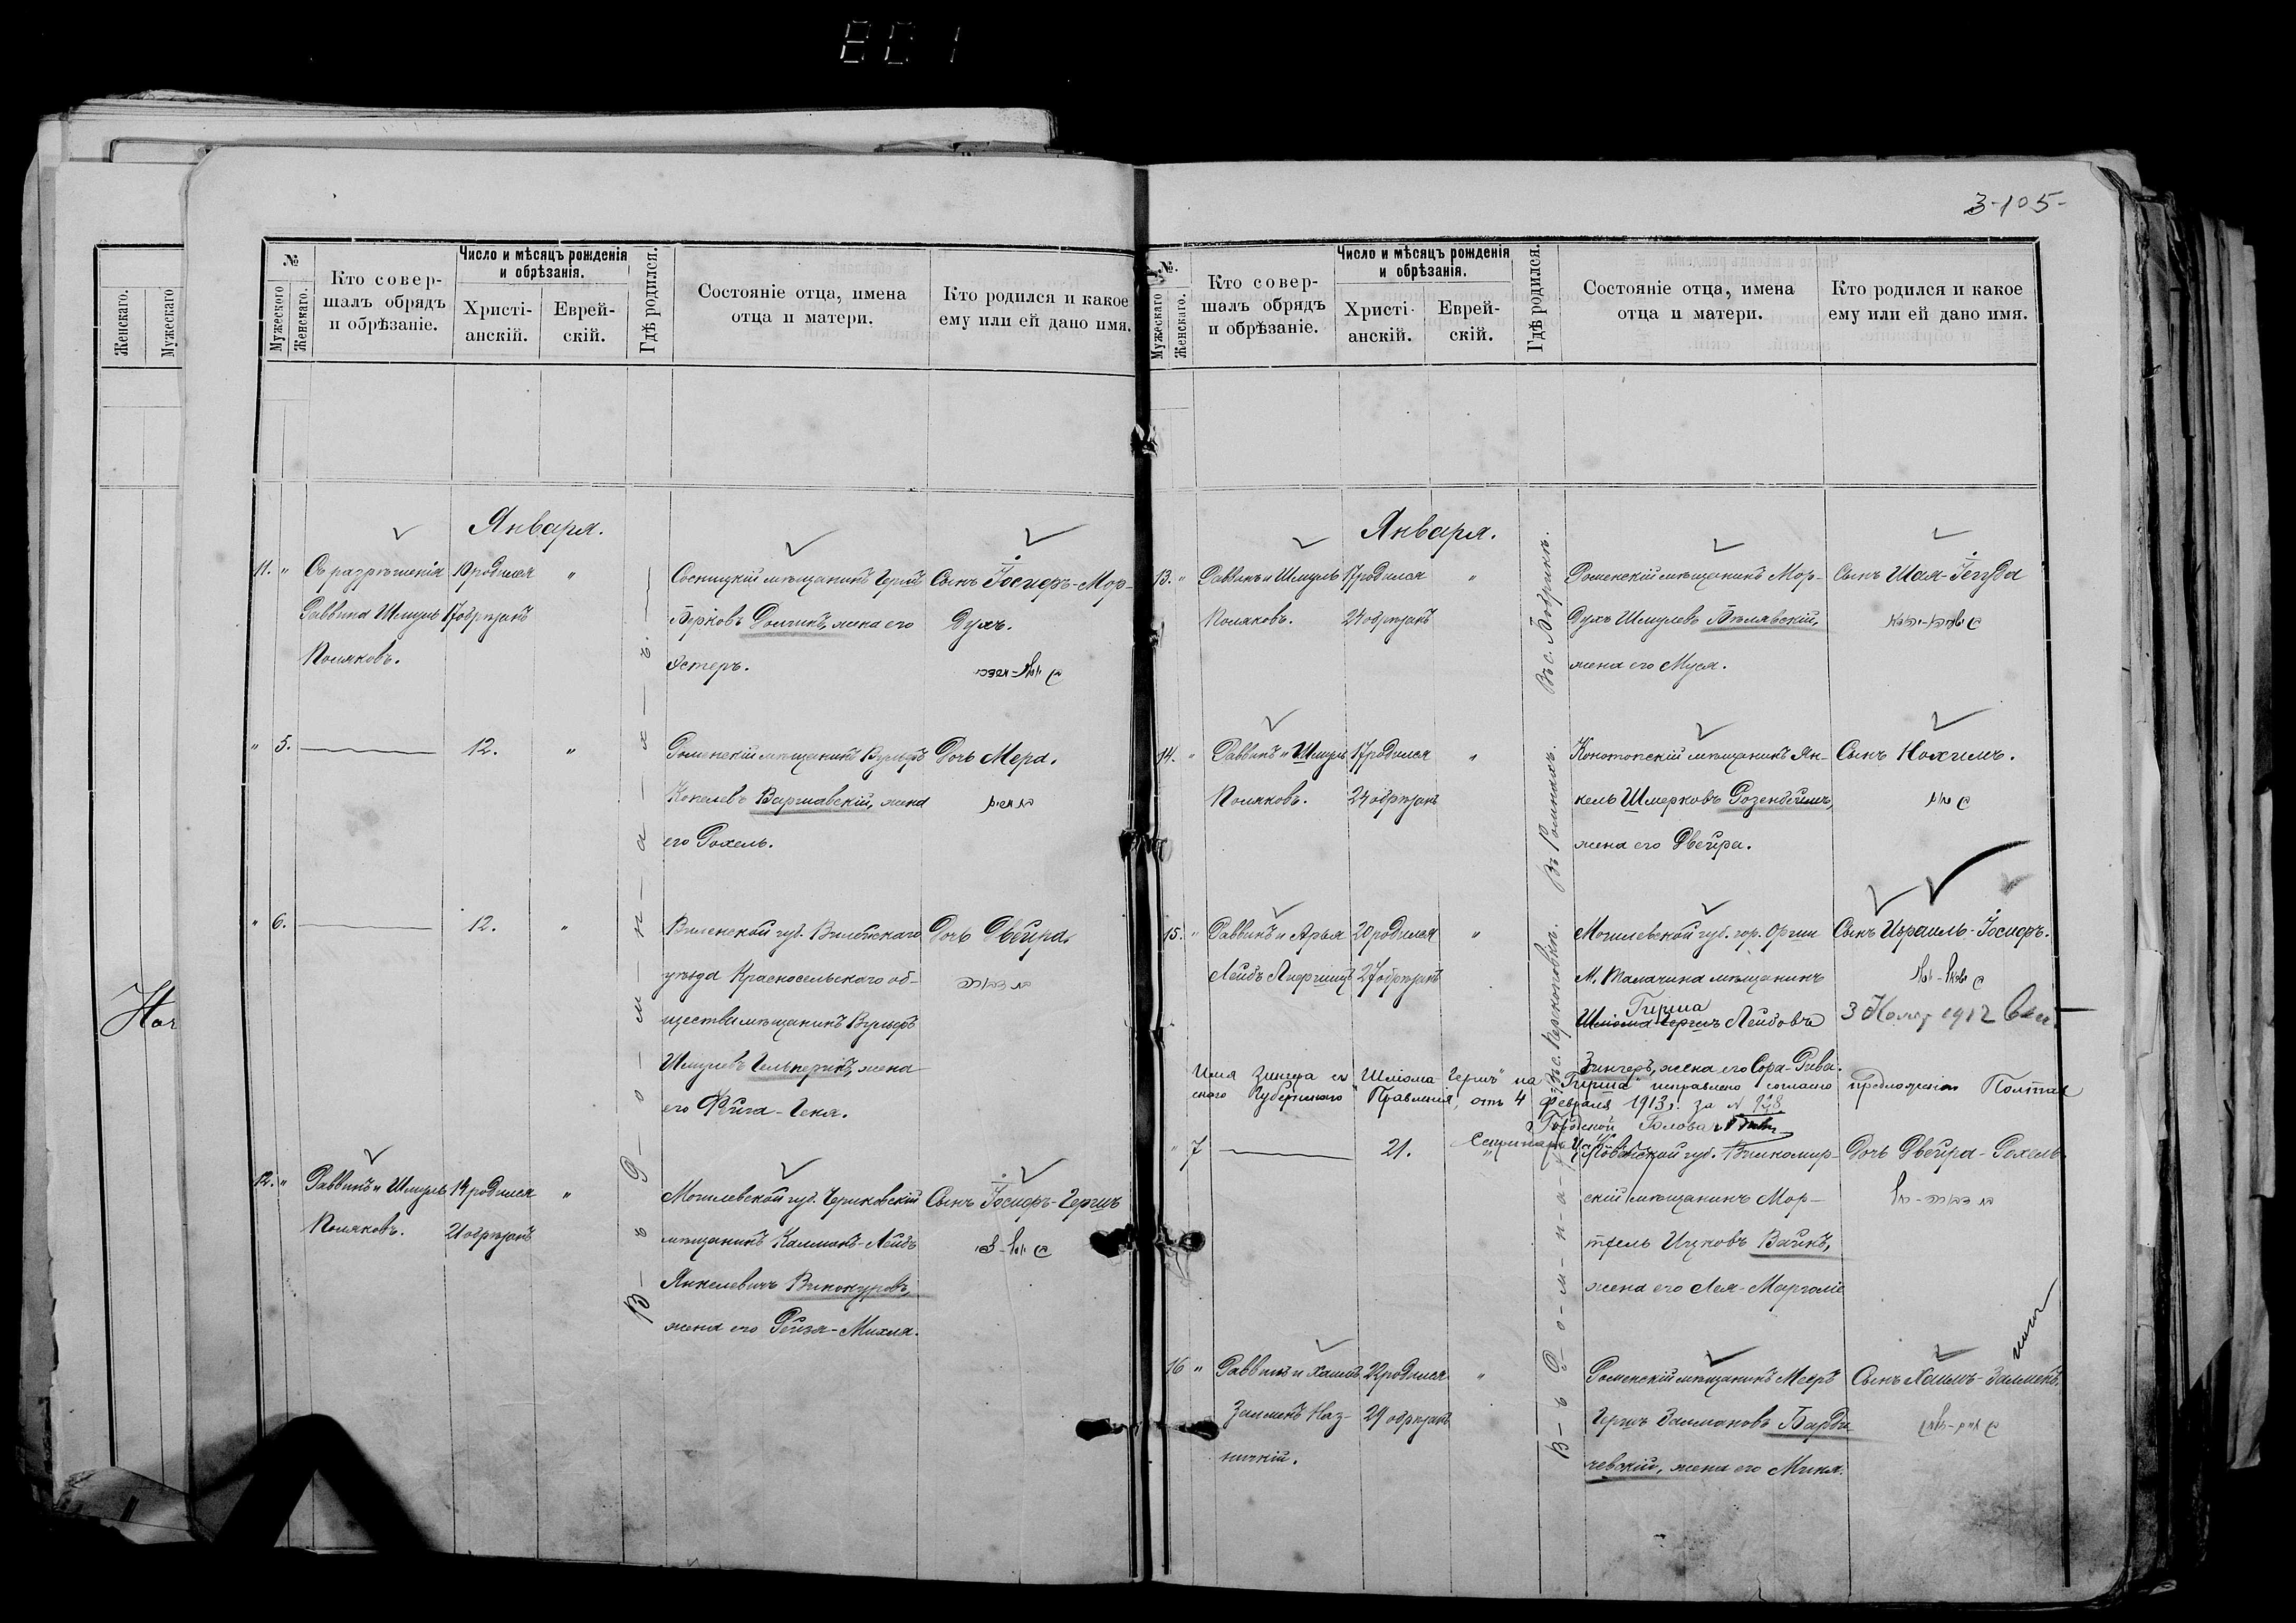 801
3-105-
Женскаго.
Мужескаго
№
Мужескаго
Женскаго.
Кто совер-
шалъ обрядъ
и обрѣзаніе.
Число и мѣсяцъ рожденія
и обрѣзанія.
Христі-
анскій.
Еврей-
скій.
Гдѣ родился.
Состояніе отца, имена
отца и матери.
Кто родился и какое
ему или ей дано имя.
Января.
11. "
Съ разрѣшенія
Раввина Шмуль
Поляковъ.
10 родился
17 обрѣзанъ
"
Сосницкій мѣщанинъ Герш
Берковъ Долгинъ, жена его
Эстеръ.
Сынъ Іосифъ-Мор-
духъ.
" 5.
12.
"
Роменскій мѣщанинъ Вульфъ
Копелевъ Варшавскій, жена
его Рохель.
Дочь Мера.
" 6.
12.
"
Виленской губ. Вилейскаго
уѣзда Красносельскаго об-
щества мѣщанинъ Вульфъ
Шмулевъ Гальперинъ, жена
его Фейга-Геня.
Дочь Двейра.
12. "
Раввинъ и Шмуль
Поляковъ.
14 родился
21 обрѣзанъ
"
Могилевской губ. Чериковскій
мѣщанинъ Калманъ-Лейбъ
Янкелевичъ Винокуровъ,
жена его Рейза-Михля.
Сынъ Іосифъ-Гершъ
В-ъ Р-о-м-н-а-х-ъ.
№.
Мужескаго
Женскаго.
Кто совер-
шалъ обрядъ
и обрѣзаніе.
Число и мѣсяцъ рожденія
и обрѣзанія.
Христі-
анскій.
Еврей-
скій.
Гдѣ родился.
Состояніе отца, имена
отца и матери.
Кто родился и какое
ему или ей дано имя.
Января.
13. "
Раввинъ и Шмуль
Поляковъ.
17 родился
24 обрѣзанъ
"
Въ с. Бобрикѣ.
Роменскій мѣщанинъ Мор-
духъ Шмулевъ Бѣлявскій,
жена его Муся.
Сынъ Шая-Іегуда
14. "
Раввинъ и Шмуль
Поляковъ.
17 родился
24 обрѣзанъ
"
Въ Ромнахъ.
Конотопскій мѣщанинъ Ян-
кель Шмерковъ Розенбеймъ,
жена его Двейра.
Сынъ Нохимъ.
15. "
Раввинъ и Арья
Лейбъ Лифшицъ
20 родился
27 обрѣзанъ
"
Могилевской губ. гор. Орши
М. Талачина мѣщанинъ
Гирша
Шлiома-Гершъ Лейбовъ
Зингеръ, жена его Сора-Рива.
Сынъ Израиль-Іосифъ.
3 Ноябр 1912
Имя Зингера съ "Шлiома Гершъ" на "Гирша" исправлено согласно предложенiя Полтав
скаго Губернскаго Правленiя, отъ 4 февраля 1913 г. за № 928
Городской Голова
Секретарь
" 7
21.
"
Ковенской губ. Вилкомир-
скій мѣщанинъ Мор-
тхель Ицковъ Вайнъ,
жена его Лея-Марголiе
Дочь Двейра-Рохель
16 "
Раввинъ и Хаимъ
Залменъ Наз-
ничкій.
22 родился
29 обрѣзанъ
"
Роменскій мѣщанинъ Мееръ
Гершъ Залмановъ Барди-
чевскій, жена его Михля.
Сынъ Хаимъ-Залменъ.